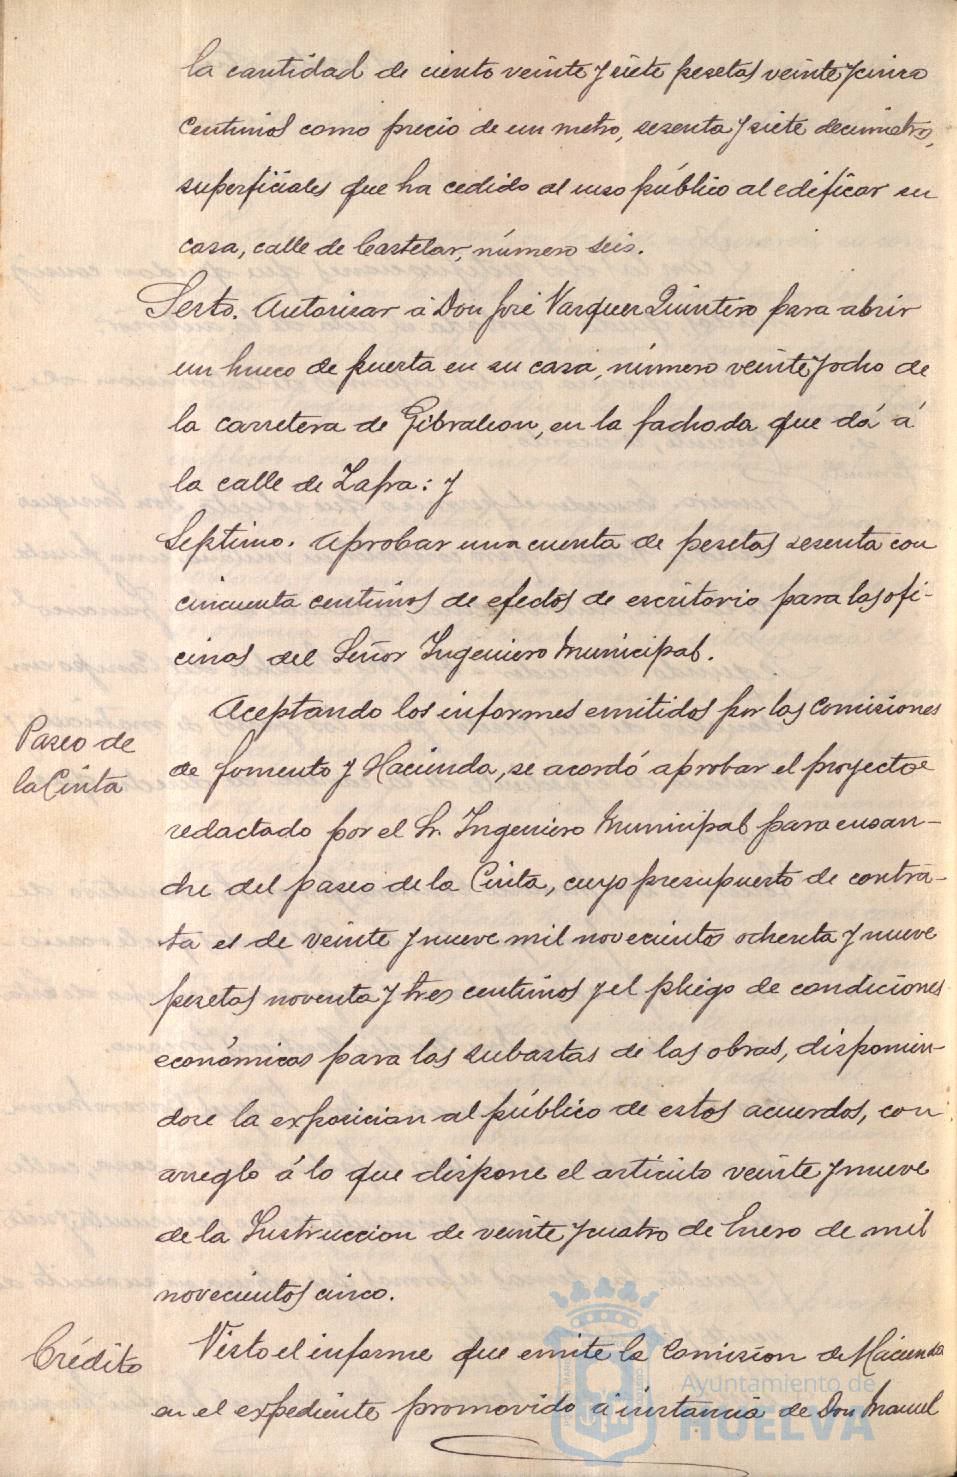 la cantidad de ciento veinte y siete pesetas veinte y cinco
centimos como precio de un metro, sesenta y siete decimetros,
superficiales que ha cedido al uso público al edificar su
casa, calle de Castelar, número seis.
Sesto. Autorizar á Don José Vazquez Quintero para abrir
un hueco de puerta en su casa, número veinte y ocho de
la carretera de Gibraleon, en la fachada que dá á
la calle de Zafra: y
Septimo. Aprobar una cuenta de pesetas sesenta con
cincuenta centimos de efectos de escritorio para las ofi-
cinas del Señor Ingeniero Municipal.
Paseo de
la Cinta
Aceptando los informes emitidos por las Comisiones
de fomento y Hacienda, se acordó aprobar el proyecto
redactado por el Sr. Ingeniero Municipal para ensan-
che del paseo de la Cinta, cuyo presupuesto de contra-
ta es de veinte y nueve mil novecientos ochenta y nueve
pesetas noventa y tres centimos y el pliego de condiciones
económicas para las subastas de las obras, disponien-
dose la exposicion al público de estos acuerdos, con
arreglo á lo que dispone el articulo veinte y nueve
de la Instruccion de veinte y cuatro de Enero de mil
novecientos cinco.
Crédito
Visto el informe que emite la Comision de Hacienda
en el expediente promovido á instancia de Don Manuel
Ayuntamiento de
HUELVA